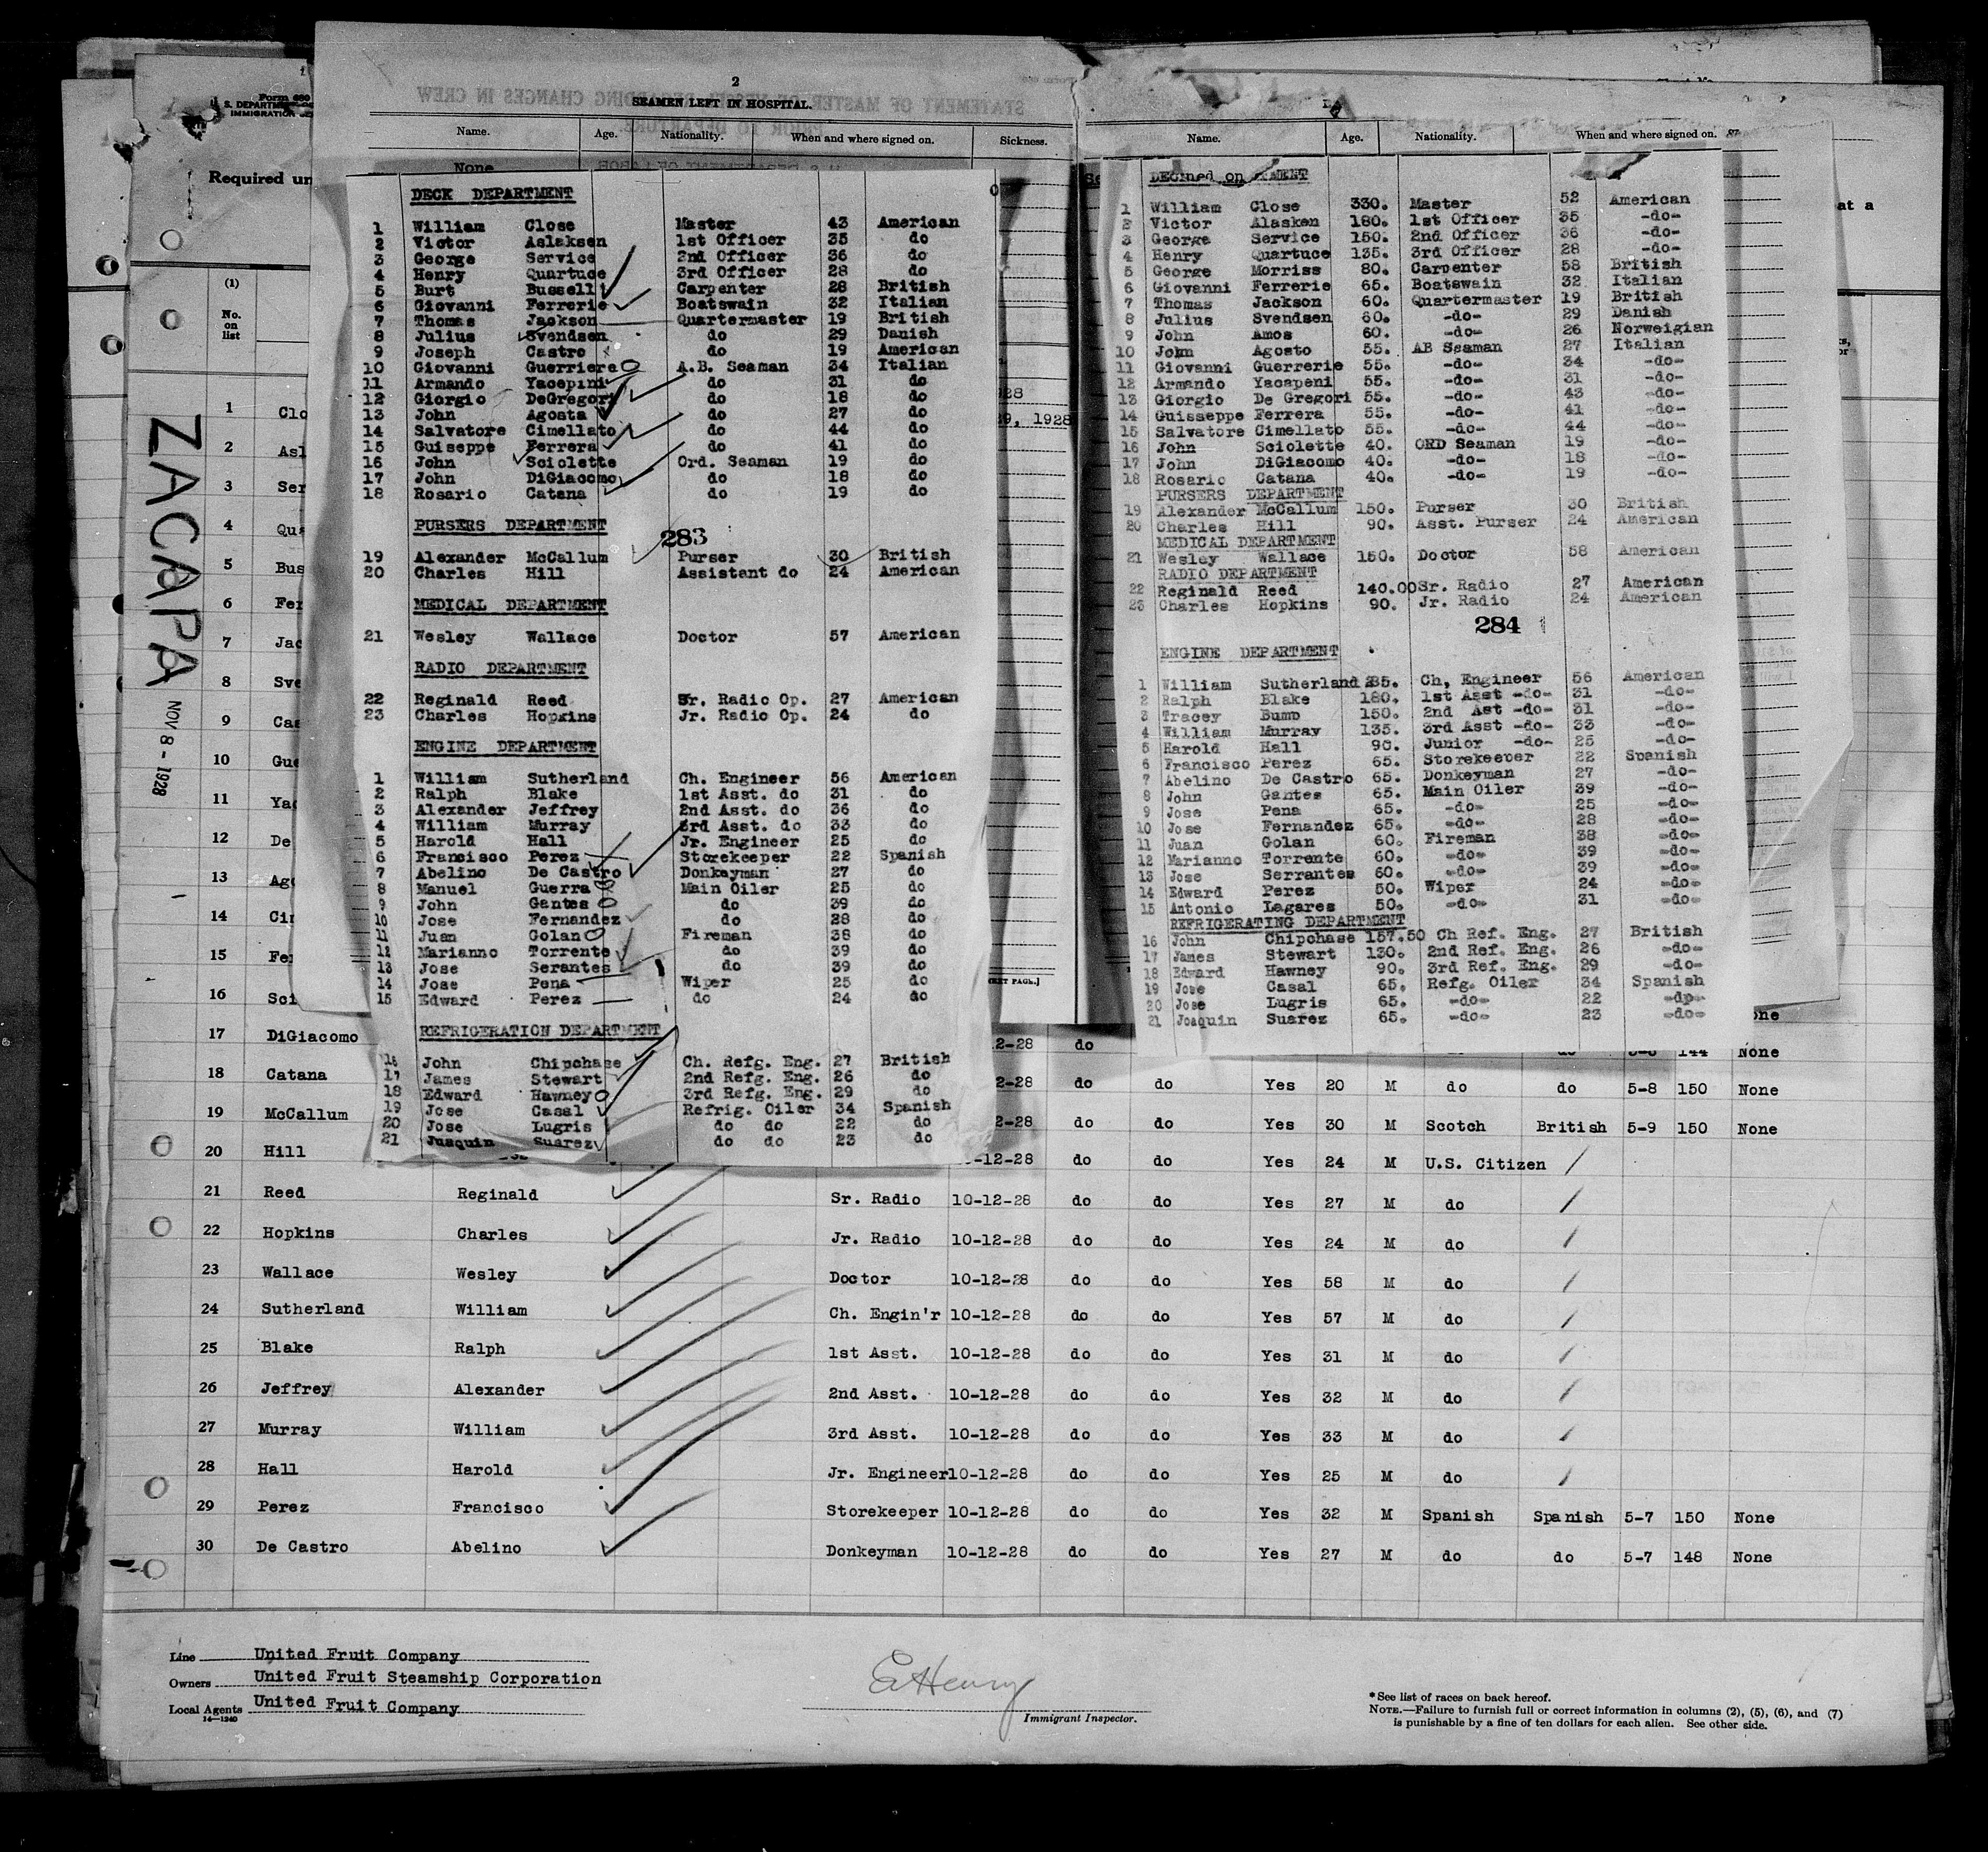 Form 680
S. DEPARTMENT
IMMIGRATION
Required un
(1)
No.
on
list
ZACAPA
NOV 8 - 1928
1 Clo
2 Asl
3 Ser
4 Qua
5 Bus
6 Fer
7 Jac
8 Sve
9 Cas
10 Gue
11 Yac
12 De
13 Ago
14 Cin
15 Fer
16 Sci
2
SEAMEN LEFT IN HOSPITAL.
Name. Age. Nationality. When and where signed on. Sickness.
None
DECK DEPARTMENT
1 William Close Master 43 American
2 Victor Aslaksen 1st Officer 35 do
3 George Service 2nd Officer 36 do
4 Henry Quartuce 3rd Officer 28 do
5 Burt Bussell Carpenter 28 British
6 Giovanni Ferrerie Boatswain 32 Italian
7 Thomas Jackson Quartermaster 19 British
8 Julius Svendsen do 29 Danish
9 Joseph Castro do 19 American
10 Giovanni Guerriere A.B. Seaman 34 Italian
11 Armando Yacepini do 31 do
12 Giorgio DeGregori do 18 do
13 John Agosta do 27 do
14 Salvatore Cimellato do 44 do
15 Guiseppe Ferrera do 41 do
16 John Sciolette Ord. Seaman 19 do
17 John DiGiacomo do 18 do
18 Rosario Catana do 19 do
PURSERS DEPARTMENT
283
19 Alexander McCallum Purser 30 British
20 Charles Hill Assistant do 24 American
MEDICAL DEPARTMENT
21 Wesley Wallace Doctor 57 American
RADIO DEPARTMENT
22 Reginald Reed Sr. Radio Op. 27 American
23 Charles Hopkins Jr. Radio Op. 24 do
ENGINE DEPARTMENT
1 William Sutherland Ch. Engineer 56 American
2 Ralph Blake 1st Asst. do 31 do
3 Alexander Jeffrey 2nd Asst. do 36 do
4 William Murray 3rd Asst. do 33 do
5 Harold Hall Jr. Engineer 25 do
6 Francisco Perez Storekeeper 22 Spanish
7 Abelino De Castro Donkeyman 27 do
8 Manuel Guerra Main Oiler 25 do
9 John Gantes do 39 do
10 Jose Fernandez do 28 do
11 Juan Golan Fireman 38 do
12 Marianno Torrente do 39 do
13 Jose Serantes do 39 do
14 Jose Pena Wiper 25 do
15 Edward Perez do 24 do
REFRIGERATION DEPARTMENT
16 John Chipchase Ch. Refg. Eng. 27 British
17 James Stewart 2nd Refg. Eng. 26 do
18 Edward Hawney 3rd Refg. Eng. 29 do
19 Jose Casal Refrig. Oiler 34 Spanish
20 Jose Lugris do do 22 do
21 Juaquin Suarez do do 23 do
Name. Age. Nationality. When and where signed on.
1 William Close 330. Master 52 American
2 Victor Alasken 180. 1st Officer 35 -do-
3 George Service 150. 2nd Officer 36 -do-
4 Henry Quartuce 135. 3rd Officer 28 -do-
5 George Morriss 80. Carpenter 58 British
6 Giovanni Ferrerie 65. Boatswain 32 Italian
7 Thomas Jackson 60. Quartermaster 19 British
8 Julius Svendsen 60. -do- 29 Danish
9 John Amos 60. -do- 26 Norweigian
10 John Agosto 55. AB Seaman 27 Italian
11 Giovanni Guerrerie 55. -do- 34 -do-
12 Armando Yacapeni 55. -do- 31 -do-
13 Giorgio De Gregori 55. -do- 43 -do-
14 Guisseppe Ferrera 55. -do- 41 -do-
15 Salvatore Cimellato 55. -do- 44 -do-
16 John Sciolette 40. ORD Seaman 19 -do-
17 John DiGiacomo 40. -do- 18 -do-
18 Rosario Catana 40. -do- 19 -do-
PURSERS DEPARTMENT
19 Alexander McCallum 150. Purser 30 British
20 Charles Hill 90. Asst. Purser 24 American
MEDICAL DEPARTMENT
21 Wesley Wallace 150. Doctor 58 American
RADIO DEPARTMENT
22 Reginald Reed 140.00 Sr. Radio 27 American
23 Charles Hopkins 90. Jr. Radio 24 American
284
ENGINE DEPARTMENT
1 William Sutherland 285. Ch, Engineer 56 American
2 Ralph Blake 180. 1st Asst -do- 31 -do-
3 Tracey Bump 150. 2nd Ast -do- 31 -do-
4 William Murray 135. 3rd Asst -do- 33 -do-
5 Harold Hall 90. Junior -do- 25 -do-
6 Francisco Perez 65. Storekeeper 22 Spanish
7 Abelino De Castro 65. Donkeyman 27 -do-
8 John Gantes 65. Main Oiler 39 -do-
9 Jose Pena 65. -do- 25 -do-
10 Jose Fernandez 65. -do- 28 -do-
11 Juan Golan 60. Fireman 38 -do-
12 Marianno Torrente 60. -do- 39 -do-
13 Jose Serrantes 60. -do- 39 -do-
14 Edward Perez 50. Wiper 24 -do-
15 Antonio Lagares 50. -do- 31 -do-
REFRIGERATING DEPARTMENT
16 John Chipchase 157.50 Ch Ref. Eng. 27 British
17 James Stewart 130. 2nd Ref. Eng. 26 -do-
18 Edward Hawney 90. 3rd Ref. Eng. 29 -do-
19 Jose Casal 65. Refg. Oiler 34 Spanish
20 Jose Lugris 65. -do- 22 -do-
21 Joaquin Suarez 65. -do- 23 -do-
17 DiGiacomo 2-28 do 144 None
18 Catana 2-28 do do Yes 20 M do do 5-8 150 None
19 McCallum 2-28 do do Yes 30 M Scotch British 5-9 150 None
20 Hill -12-28 do do Yes 24 M U.S. Citizen
21 Reed Reginald Sr. Radio 10-12-28 do do Yes 27 M do
22 Hopkins Charles Jr. Radio 10-12-28 do do Yes 24 M do
23 Wallace Wesley Doctor 10-12-28 do do Yes 58 M do
24 Sutherland William Ch. Engin'r 10-12-28 do do Yes 57 M do
25 Blake Ralph 1st Asst. 10-12-28 do do Yes 31 M do
26 Jeffrey Alexander 2nd Asst. 10-12-28 do do Yes 32 M do
27 Murray William 3rd Asst. 10-12-28 do do Yes 33 M do
28 Hall Harold Jr. Engineer 10-12-28 do do Yes 25 M do
29 Perez Francisco Storekeeper 10-12-28 do do Yes 32 M Spanish Spanish 5-7 150 None
30 De Castro Abelino Donkeyman 10-12-28 do do Yes 27 M do do 5-7 148 None
Line United Fruit Company
Owners United Fruit Steamship Corporation
Local Agents United Fruit Company
14-1240
EHenry
Immigrant Inspector.
*See list of races on back hereof.
NOTE.—Failure to furnish full or correct information in columns (2), (5), (6), and (7)
is punishable by a fine of ten dollars for each alien. See other side.